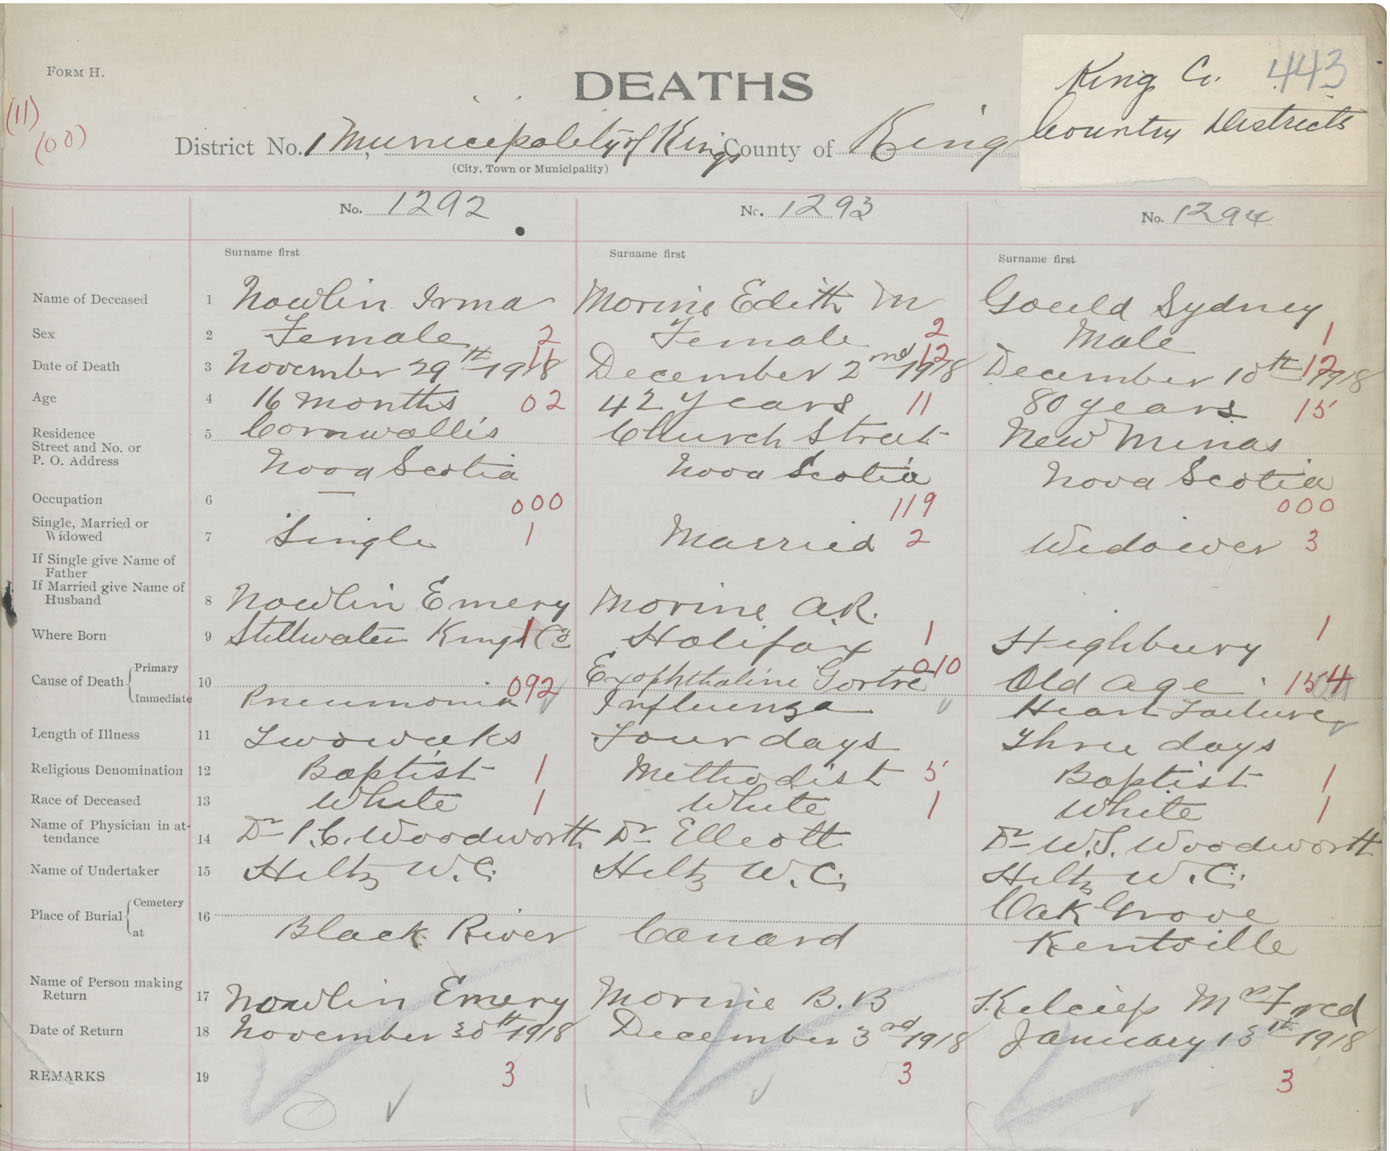 FORM H.
DEATHS
King Co. 443
Country Districts
(11)
(00)
District No. 1 Municipality of Kings County of King
(City, Town or Municipality)
No. 1292 No. 1293 No. 1294
Surname first Surname first Surname first
Name of Deceased 1 Nowlin Irma Morine Edith M Gould Sydney
Sex 2 Female 2 Female 2 Male 1
Date of Death 3 November 29th 1918 11 December 2nd 1918 12 December 10th 1918 12
Age 4 16 months 02 42 years 11 80 years 15
Residence 5 Cornwallis Church Street New Minas
Street and No. or
P. O. Address Nova Scotia Nova Scotia Nova Scotia
Occupation 6 — 000 119 000
Single, Married or
Widowed 7 Single 1 Married 2 Widower 3
If Single give Name of
Father
If Married give Name of
Husband 8 Nowlin Emery Morine A.R.
Where Born 9 Stillwater Kings Co 1 Halifax 1 Highbury 1
Cause of Death Primary 10 Exophthaline Goitre 010 Old age 154
Immediate Pneumonia 092 Influenza Heart Failure
Length of Illness 11 Two weeks Four days Three days
Religious Denomination 12 Baptist 1 Methodist 5 Baptist 1
Race of Deceased 13 White 1 White 1 White 1
Name of Physician in at-
tendance 14 Dr P.C. Woodworth Dr Elleott Dr W.S. Woodworth
Name of Undertaker 15 Hiltz W.C. Hiltz W.C. Hiltz W.C.
Place of Burial Cemetery 16 Oak Grove
at Black River Canard Kentville
Name of Person making
Return 17 Nowlin Emery Morine B.B Mrs Fred
Date of Return 18 November 30th 1918 December 3rd 1918 January 13th 1918
REMARKS 19 3 3 3